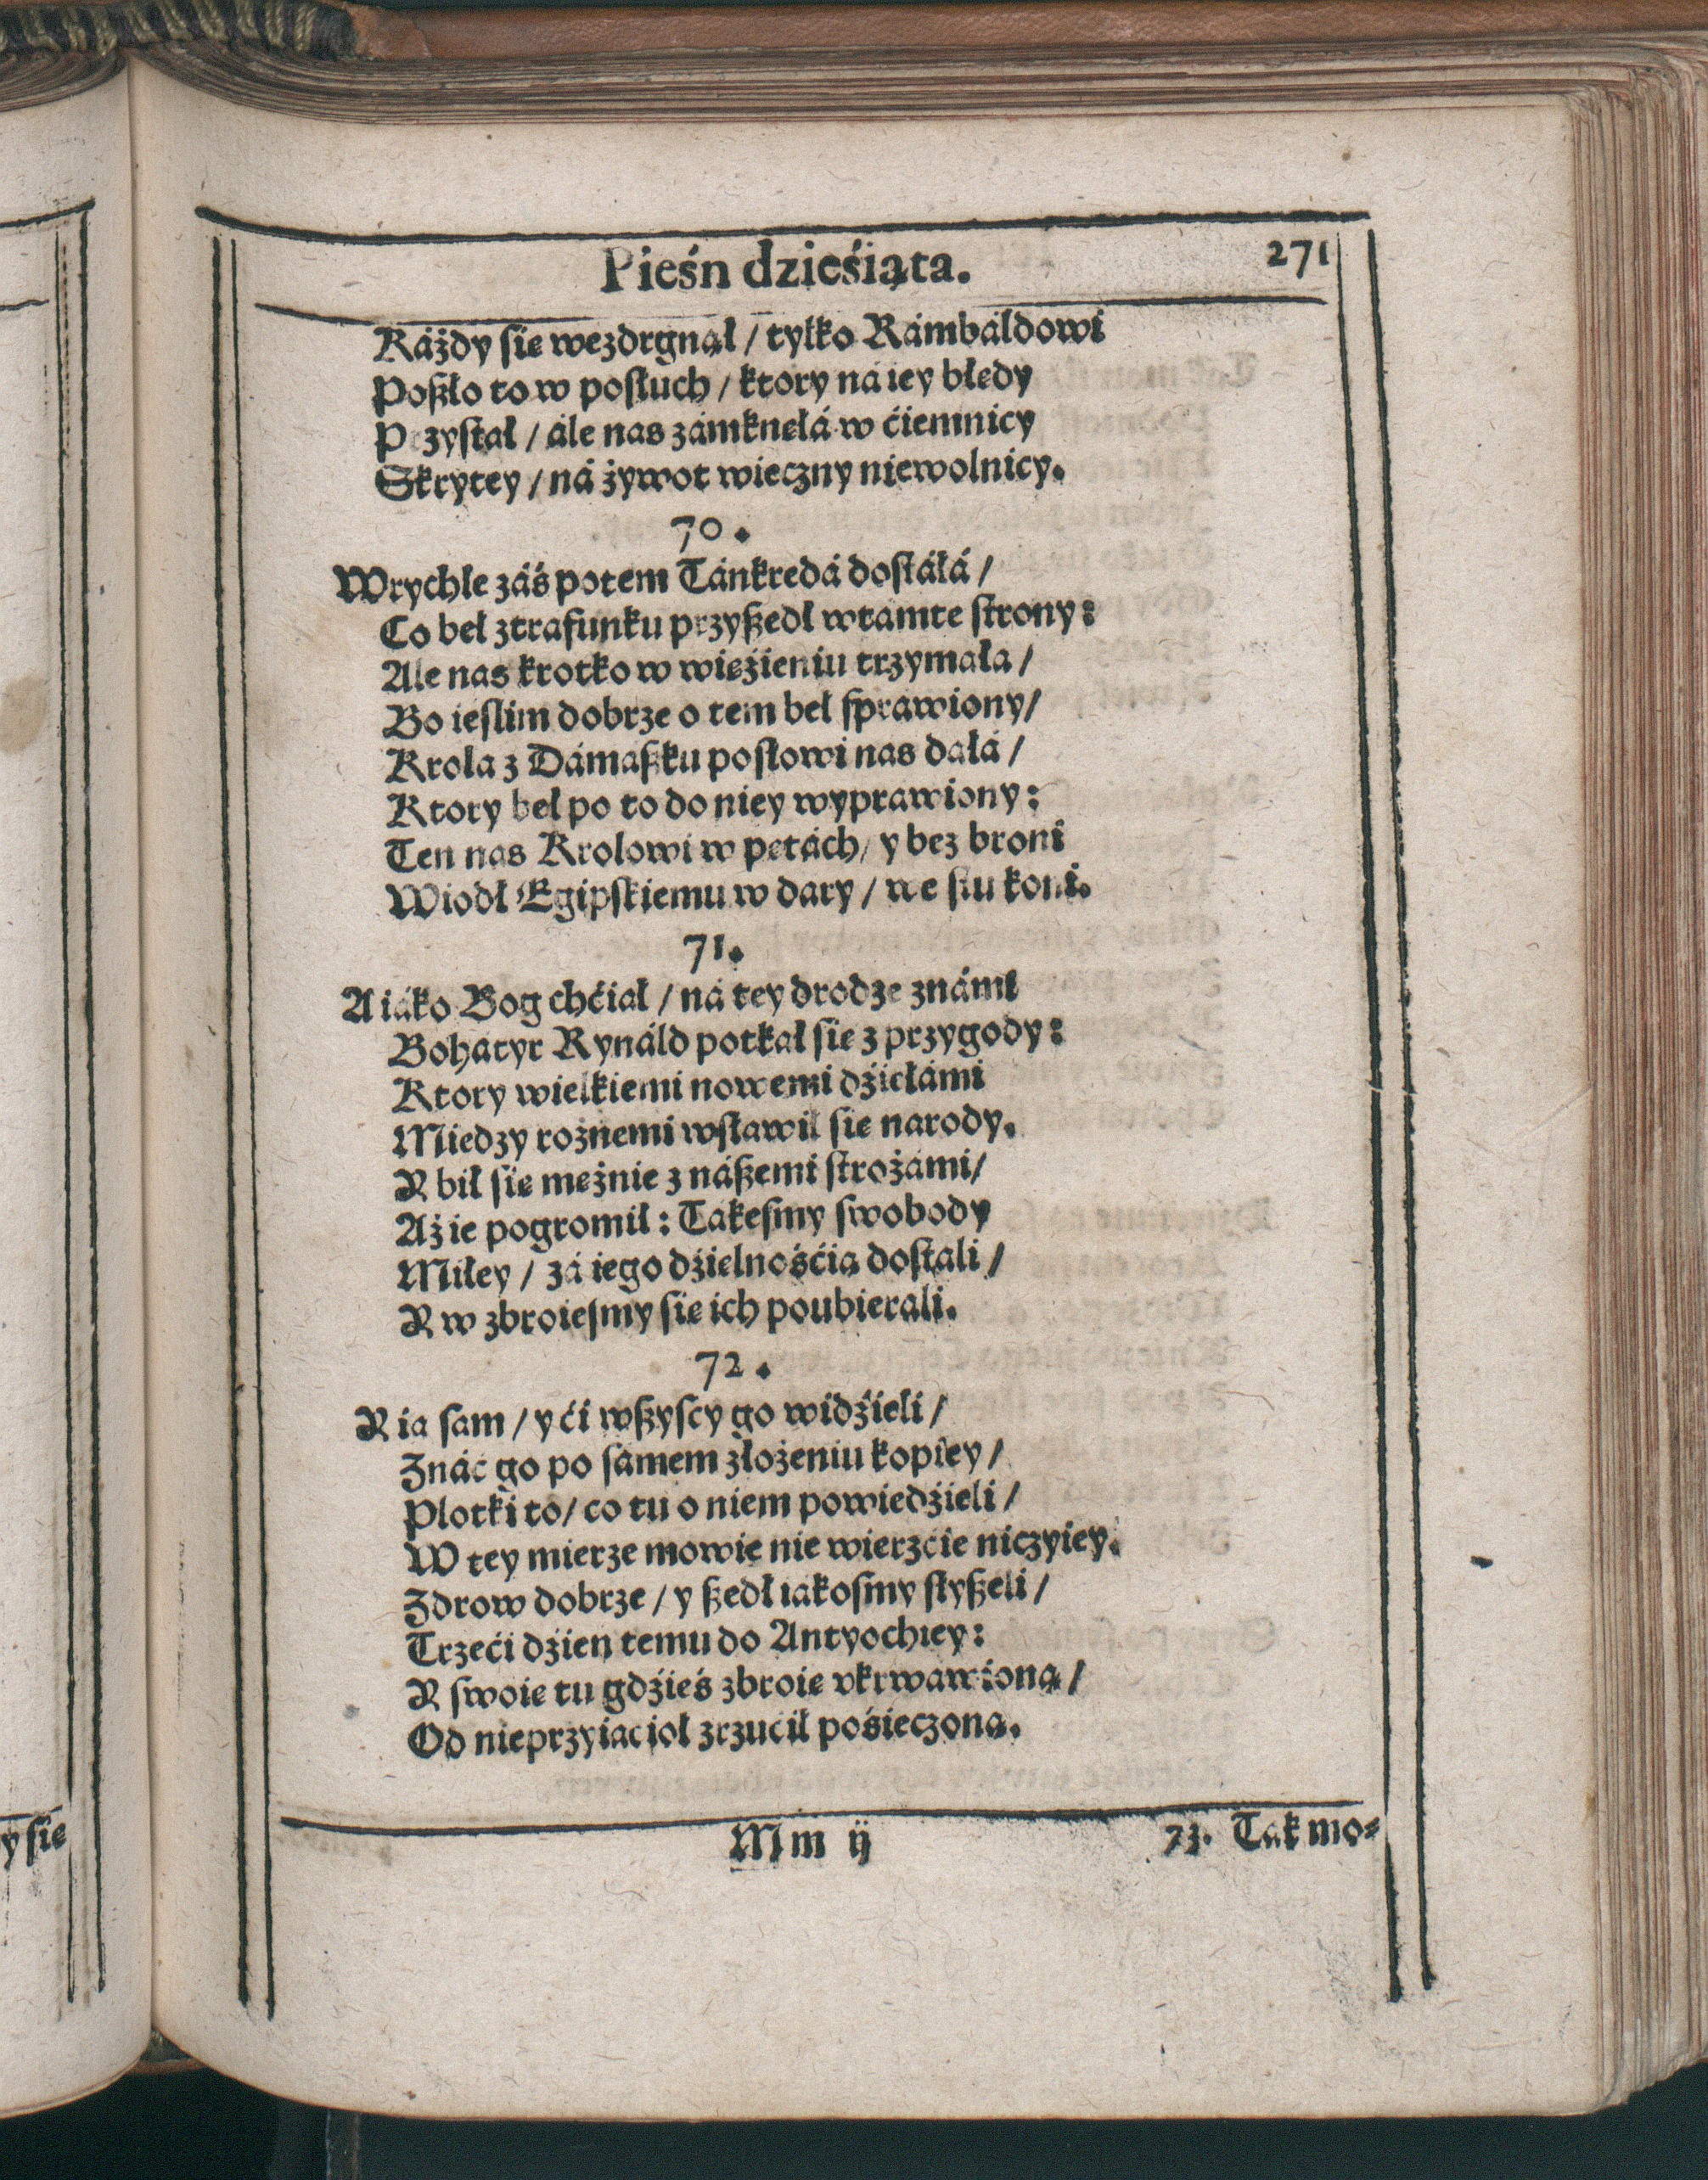 y sie
Pieśn dzieśiąta.
271
Káżdy sie wezdrgnął / tylko Rámbáldowi
Poszło to w posłuch / ktory ná iey błędy
Przystał / ále nas zámknęłá w ćiemnicy
Skrytey / ná żywot wieczny niewolnicy.
70.
Wrychle záś potem Tánkredá dostáłá /
Co beł ztrafunku przyszedł w tamte strony:
Ale nas krotko w więźieniu trzymała /
Bo ieslim dobrze o tem beł sprawiony /
Krola z Dámaszku posłowi nas dałá /
Ktory beł po to do niey wyprawiony:
Ten nas Krolowi w pętách / y bez broni
Wiodł Egipskiemu w dary / we stu koni.
71.
A iáko Bog chćiał / ná tey drodze známi
Bohátyr Rynáld potkał sie z przygody:
Ktory wielkiemi nowemi dźiełámi
Miedzy rożnemi wsławił sie narody.
Y bił sie mężnie z nászemi strożámi /
Aż ie pogromił: Takesmy swobody
Miłey / zá iego dźielnośćią dostali /
Y w zbroiesmy sie ich poubierali.
72.
Y ia sam / y ći wszyscy go widźieli /
Znáć go po sámem złożeniu kopiey /
Plotki to / co tu o niem powiedźieli /
W tey mierze mowie nie wierzćie niczyiey.
Zdrow dobrze / y szedł iakosmy słyszeli /
Trzeći dźien temu do Antyochiey:
Y swoie tu gdźieś zbroie vkrwawioną /
Od nieprzyiacioł zrzucił pośieczoną.
Mm ij
73. Tak mo-